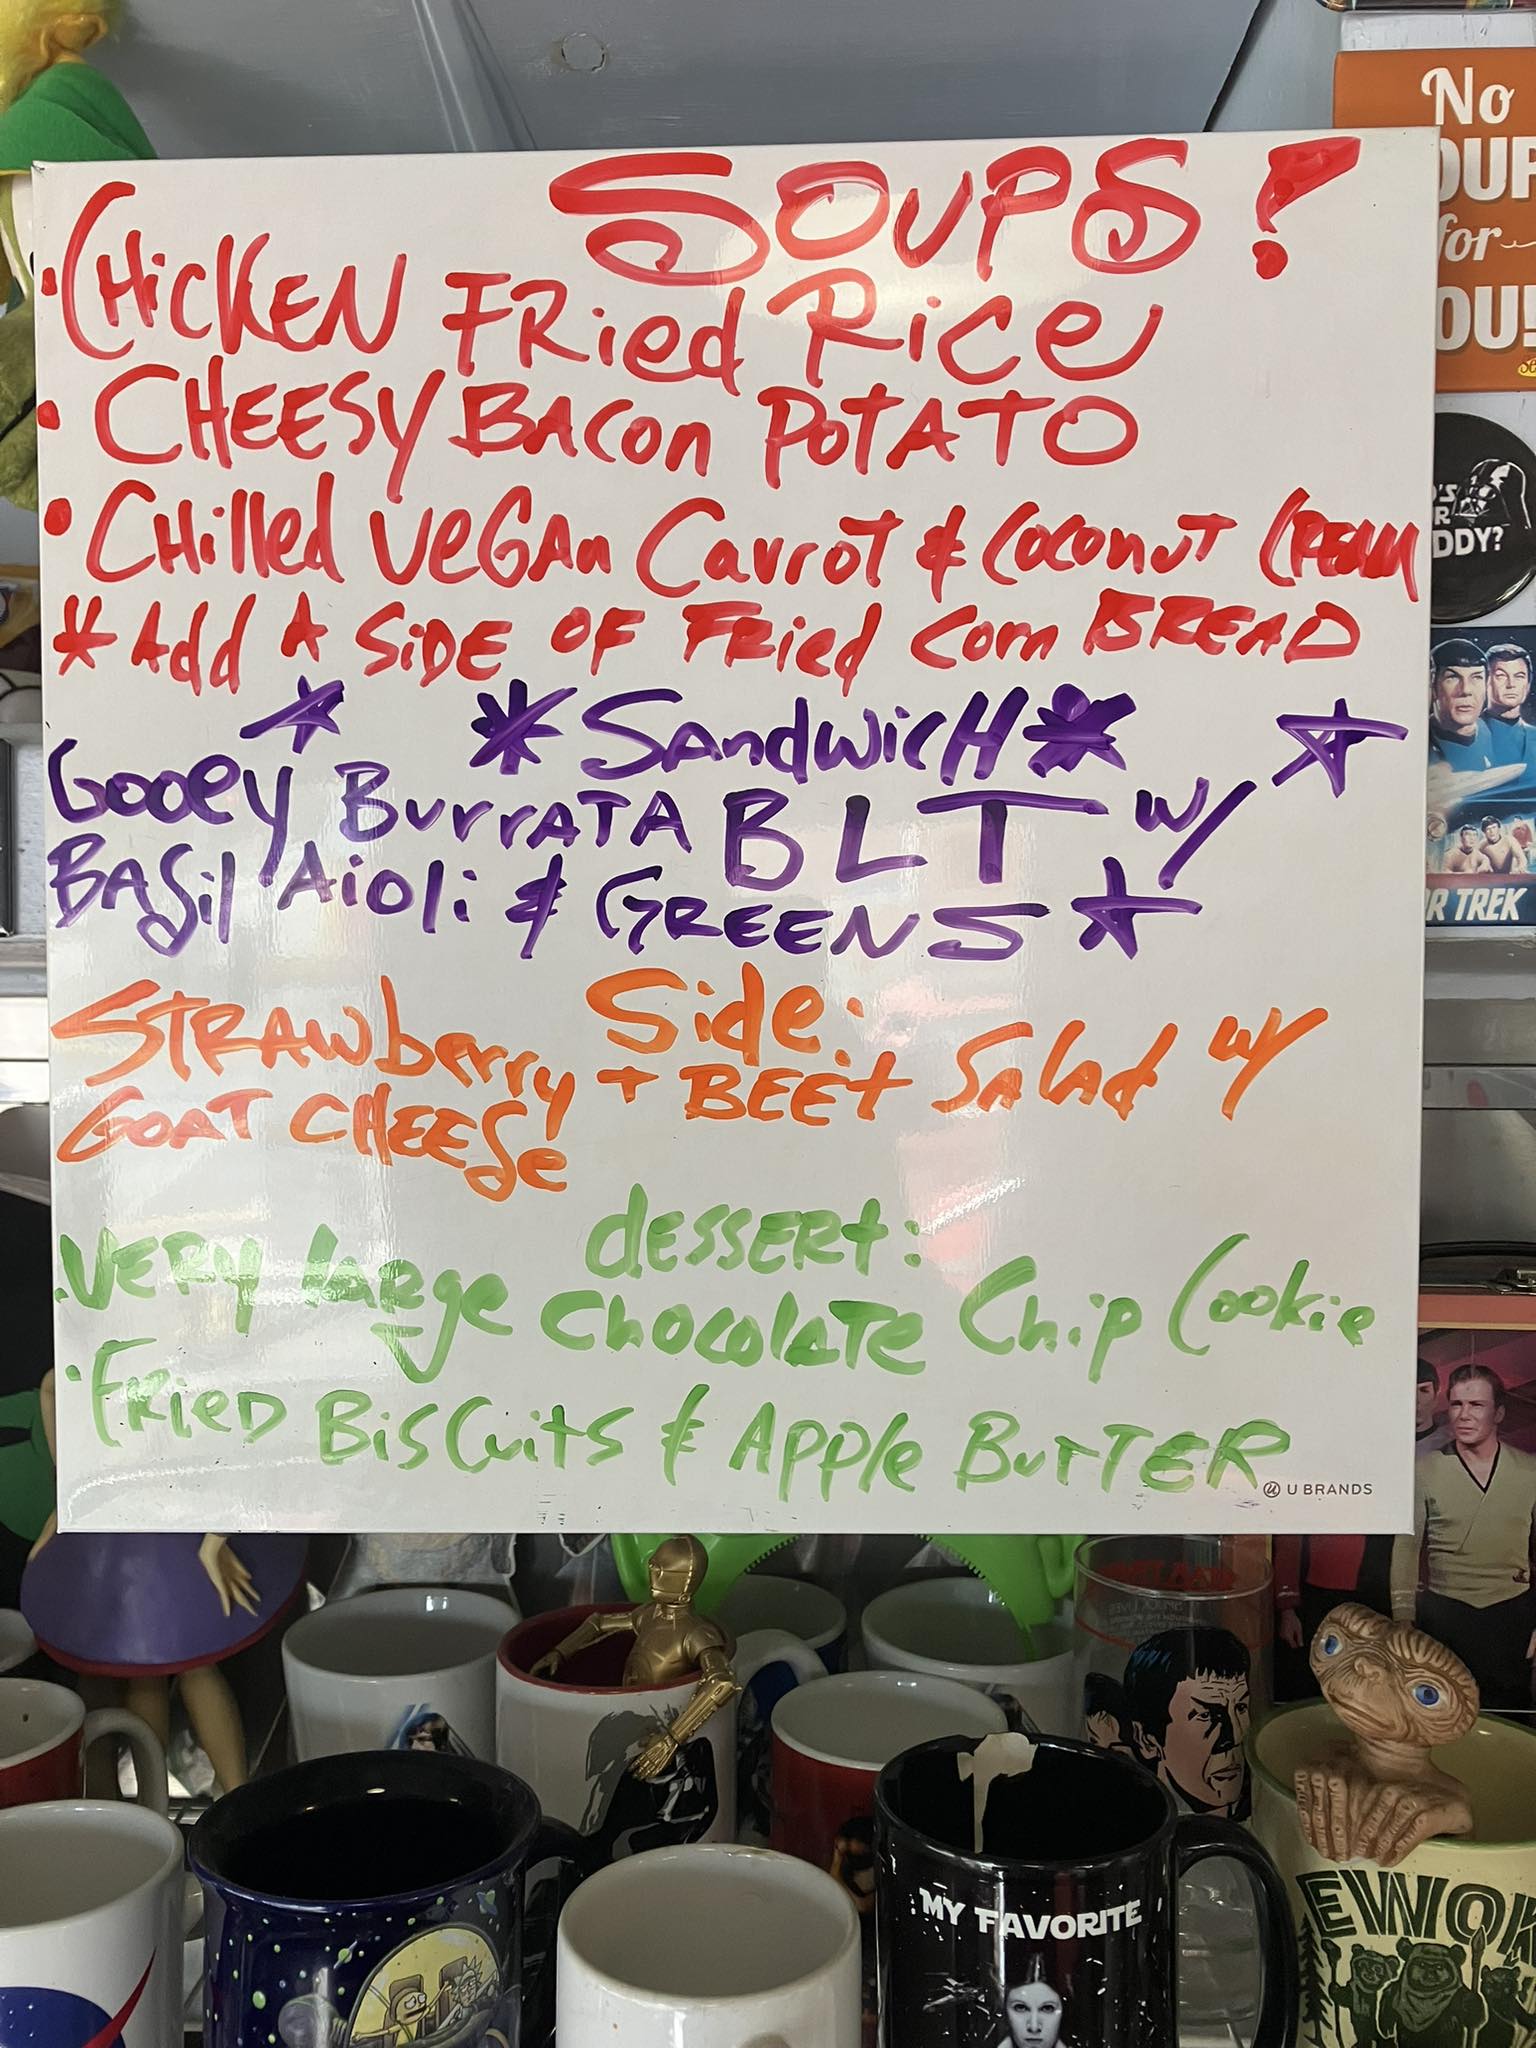 SOUPS!
• CHicKEN FRied Rice
• CHEESY BACon PoTATO
• CHilled VeGAn Carrot & Coconut CREAM
* Add A SiDE OF FRied Corn BREAD
* SAndwicH *
Gooey BurrATA BLT w/
BASil Aioli & GREENS
Side:
STRAWberry + BEEt SAlad w/
GOAT CHEESe
dESSERt:
• VERY laRge ChocolATe Chip Cookie
• FRieD BiSCuitS & Apple BuTTER
U BRANDS
No
OUP
for
OU!
DDY?
R TREK
MY FAVORITE
EWOK